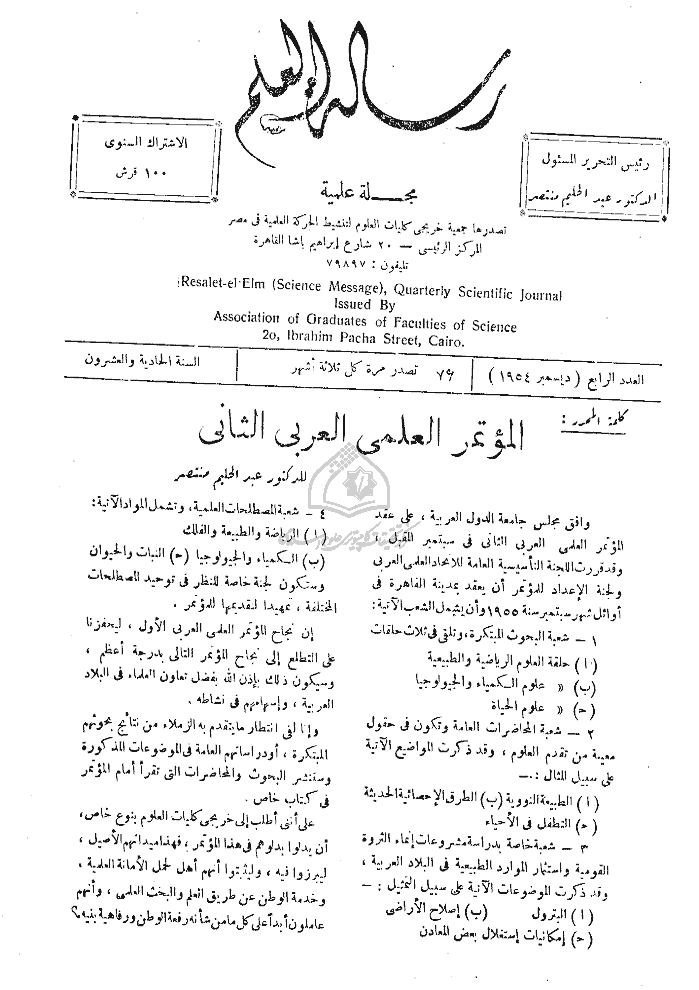 رسالة العلم
رئيس التحرير المسئول
الدكتور عبد الحليم منتصر
الاشتراك السنوى
١٠٠ قرش
مجلة علمية
تصدرها جمعية خريجى كليات العلوم لتنشيط الحركة العلمية فى مصر
المركز الرئيسى — ٢٠ شارع إبراهيم باشا القاهرة
تليفون : ٧٩٨٩٧
Resalet-el-Elm (Science Message), Quarterly Scientific Journal
Issued By
Association of Graduates of Faculties of Science
2o, Ibrahim Pacha Street, Cairo.
العدد الرابع ( ديسمبر ١٩٥٤ )
٧٩ تصدر مرة كل ثلاثة أشهر
السنة الحادية والعشرون
كلمة المحرر :
المؤتمر العلمى العربى الثانى
للدكتور عبد الحليم منتصر
وافق مجلس جامعة الدول العربية ، على عقد
المؤتمر العلمى العربى الثانى فى سبتمبر المقبل ،
وقد قررت اللجنة التأسيسية العامة للاتحاد العلمى العربى
ولجنة الإعداد للمؤتمر أن يعقد بمدينة القاهرة فى
أوائل شهر سبتمبر سنة ١٩٥٥ وأن يشمل الشعب الآتية :
١ — شعبة البحوث المبتكرة ، وتلقى فى ثلاث حلقات
(١) حلقة العلوم الرياضية والطبيعية
(ب) » علوم الكمياء والجيولوجيا
(ح) » علوم الحياة
٢ — شعبة المحاضرات العامة وتكون فى حقول
معينة من تقدم العلوم ، وقد ذكرت المواضيع الآتية
على سبيل المثال : —
(١) الطبيعة النووية (ب) الطرق الإحصائية الحديثة
(ح) التطفل فى الأحياء
٣ — شعبة خاصة بدراسة مشروعات إنماء الثروة
القومية واستثمار الموارد الطبيعية فى البلاد العربية ،
وقد ذكرت الموضوعات الآتية على سبيل التمثيل : —
(١) البترول (ب) إصلاح الأراضى
(ح) إمكانيات إستغلال بعض المعادن
٤ — شعبة المصطلحات العلمية ، وتشمل المواد الآتية :
(١) الرياضة والطبيعة والفلك
(ب) الكمياء والجيولوجيا (ح) النبات والحيوان
وستكون لجنة خاصة للنظر فى توحيد المصطلحات
المختلفة ، تمهيدا لتقديمها للمؤتمر .
إن نجاح المؤتمر العلمى العربى الأول ، ليحفزنا
على التطلع إلى نجاح المؤتمر التالى بدرجة أعظم ،
وسيكون ذلك بإذن الله بفضل تعاون العلماء فى البلاد
العربية ، وإسهامهم فى نشاطه .
وإنا لفى انتظار ما يتقدم به الزملاء من نتائج بحوثهم
المبتكرة ، أو دراساتهم العامة فى الموضوعات المذكورة
وستنشر البحوث والمحاضرات التى تقرأ أمام المؤتمر
فى كتاب خاص .
على أننى أطلب إلى خريجى كليات العلوم بنوع خاص ،
أن يدلوا بدلوهم فى هذا المؤتمر ، فهذا ميدانهم الأصيل ،
ليبرزوا فيه ، وليثبتوا أنهم أهل لحمل الأمانة العلمية ،
وخدمة الوطن عن طريق العلم والبحث العلمى ، وأنهم
عاملون أبداً على كل ما من شأنه رفعة الوطن ورفاهية بنيه